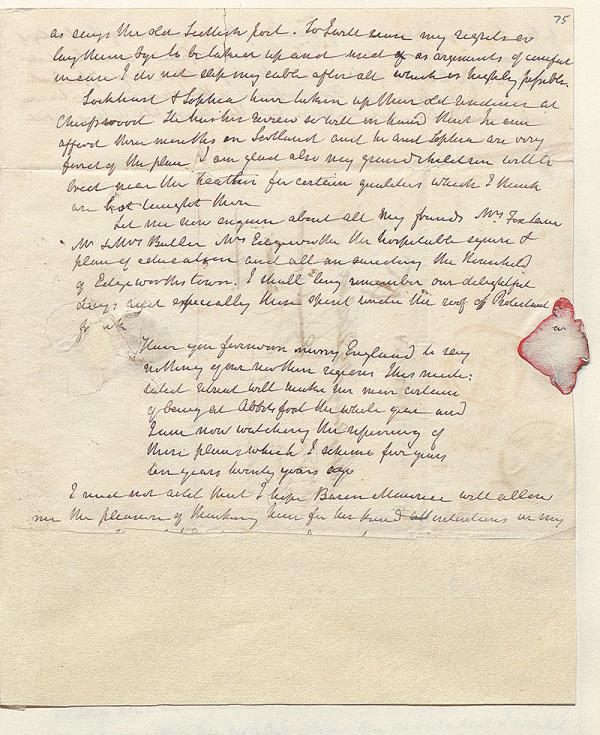 75
as says the old Scottish poet. So I will save my regrets or
lay them bye to be taken up and used as arguments of comfort
in case I do not slip my cable after all which is highly possible.
Lockhart & Sophia have taken up their old residence at
Chiefswood He has his review so well in hand that he can
afford three months in Scotland and he and Sophia are very
fond of the place I am glad also my grandchildren will be
bred near the heather for certain qualities which I think
are best taught there
Let me now enquire about all my friends Mrs Fox
Mr & Mrs Butler Mrs Edgeworth the hospitable squire &
plan of education and all an sundry the Household
of Edgeworthstown. I shall long remember our delightful
days and especially those spent under the roof of Protestant
Have you forsworn merry England to say
nothing of our northern regions This medi:
tated retreat will make me more certain
of being at Abbotsford the whole year and
I am now watching the ripening of
those plans which I schemed five years
ten years twenty years ago
I need not add that I hope will allow
me the pleasure of thanking him for his kind attentions in my